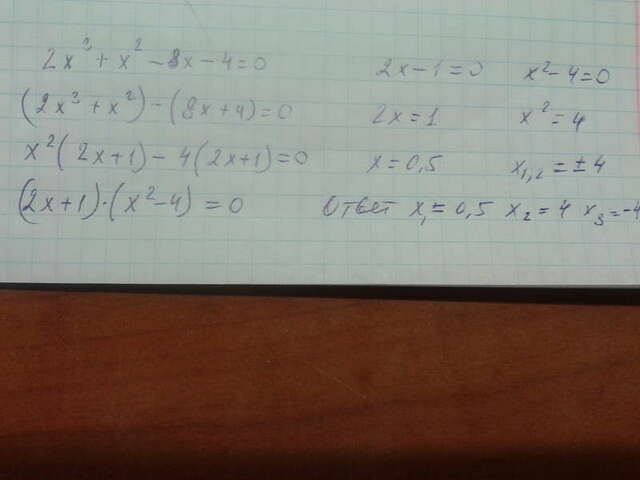 2x³ + x² - 8x - 4 = 0
(2x³ + x²) - (8x + 4) = 0
x²(2x+1) - 4(2x+1) = 0
(2x+1)·(x²-4) = 0
2x - 1 = 0
2x = 1
x = 0,5
x² - 4 = 0
x² = 4
x₁,₂ = ± 4
Ответ x₁ = 0,5 x₂ = 4 x₃ = -4